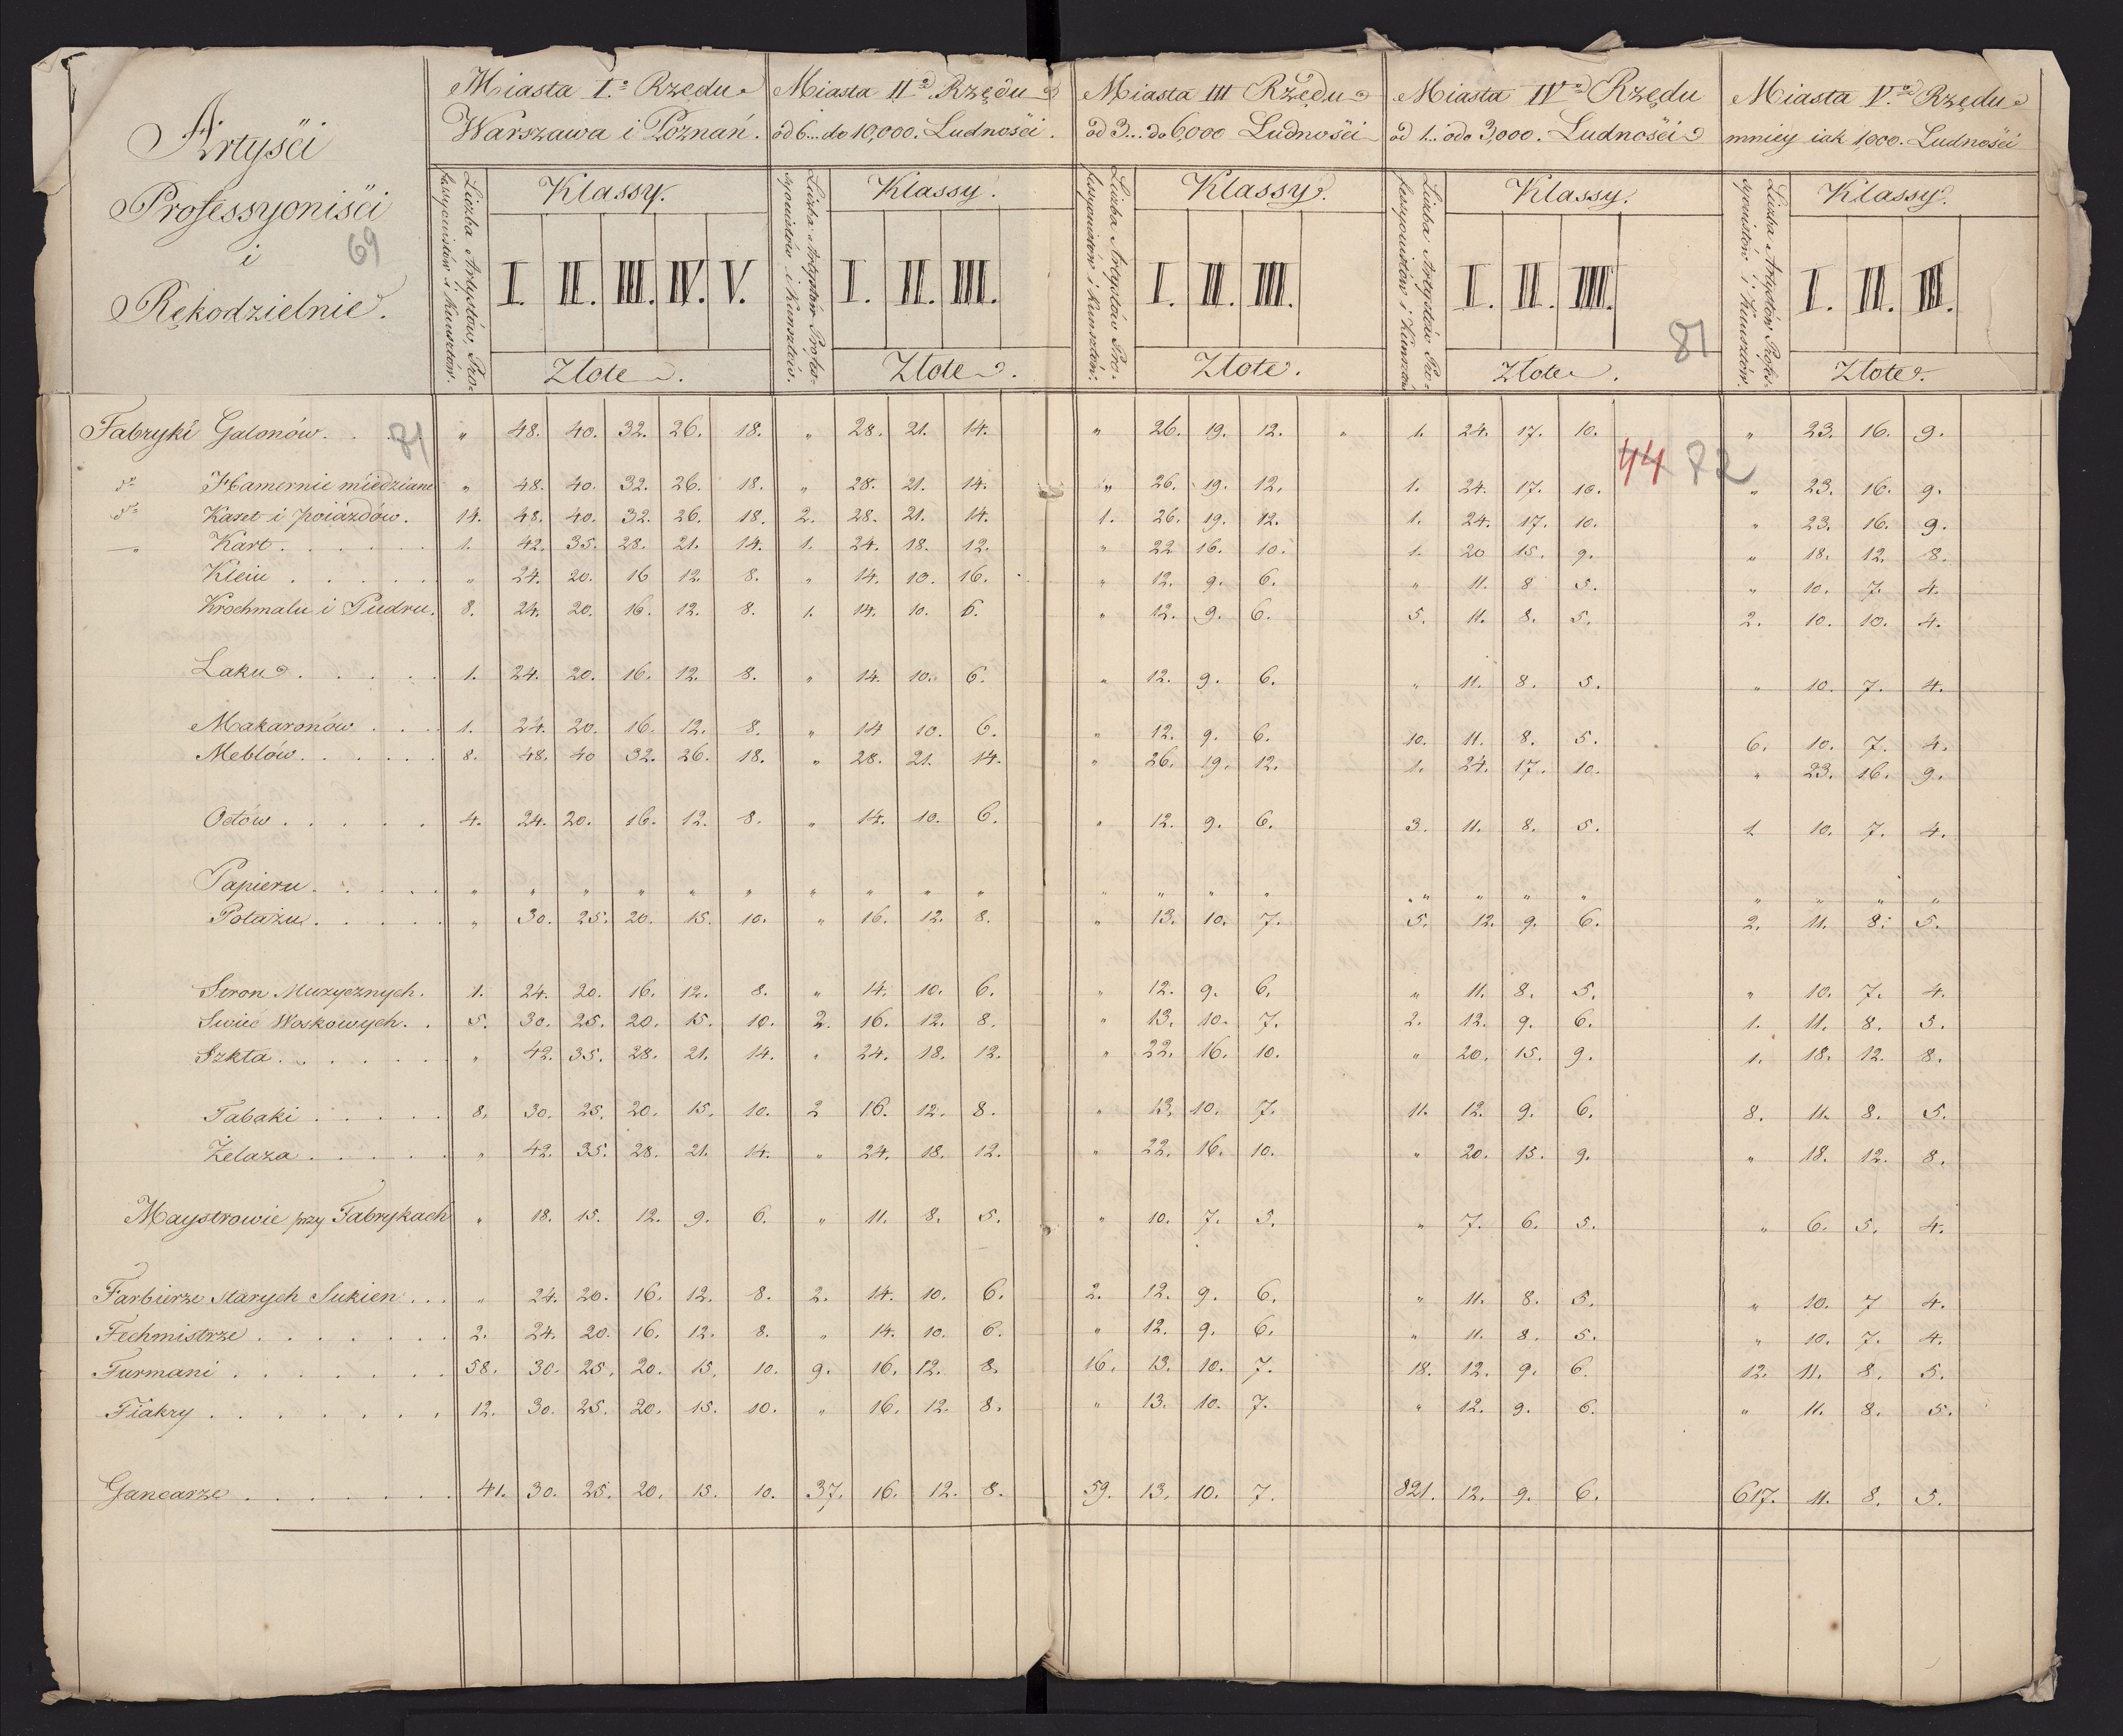 Artyści
Professyoniści
i
Rękodzielnie.
69
Miasta I.o Rzędu
Warszawa i Poznań.
Miasta IIo Rzędu
od 6... do 10,000. Ludności.
Miasta III Rzędu
od 3... do 6,000 Ludności
Miasta IVo Rzędu
od 1... do 3,000. Ludności
Miasta V.o Rzędu
mniey iak 1,000. Ludności
Liczba Artystów, Professyonistów i Kunsztów.
Klassy.
I. II. III. IV. V.
Złote.
Liczba Artystów Professyonistów i Kunsztów.
Klassy.
I. II. III.
Złote.
Liczba Artystów Professyonistów i Kunsztów.
Klassy.
I. II. III.
Złote.
Liczba Artystów Professyonistów i Kunsztów
Klassy.
I. II. III.
81
Złote.
Liczba Artystów Professyonistów i Kunsztów.
Klassy.
I. II. III.
Złote.
Fabryki Galonów. . . 71 „ 48. 40. 32. 26. 18. „ 28. 21. 14. „ 26. 19. 12. „ 1. 24. 17. 10. „ 23. 16. 9.
44 82
do Hamernie miedziane „ 48. 40. 32. 26. 18. „ 28. 21. 14. „ 26. 19. 12. 1. 24. 17. 10. „ 23. 16. 9.
do Karet i poiazdów. 14. 48. 40. 32. 26. 18. 2. 28. 21. 14. 1. 26. 19. 12. 1. 24. 17. 10. „ 23. 16. 9.
—„ Kart . . . . . 1. 42. 35. 28. 21. 14. 1. 24. 18. 12. „ 22 16. 10. 1. 20 15. 9. „ 18. 12. 8.
Kleiu . . . . . „ 24. 20. 16 12. 8. „ 14. 10. 16. „ 12. 9. 6. „ 11. 8 5. „ 10. 7. 4.
Krochmalu i Pudru. 8. 24. 20. 16. 12. 8. 1. 14. 10. 6. „ 12. 9. 6. 5. 11. 8. 5. 2. 10. 10. 4.
Laku . . . . . 1. 24. 20. 16. 12. 8. „ 14. 10. 6. „ 12. 9. 6. „ 11. 8. 5. „ 10. 7. 4.
Makaronów . . . 1. 24. 20. 16. 12. 8. „ 14 10. 6. „ 12. 9. 6. 10. 11. 8. 5. 6. 10. 7. 4.
Meblów . . . . . 8. 48. 40 32. 26. 18. „ 28. 21. 14. „ 26. 19. 12. 1. 24. 17. 10. „ 23. 16. 9.
Octów . . . . . 4. 24. 20. 16. 12. 8. „ 14. 10. 6. „ 12. 9. 6. 3. 11. 8. 5. 1. 10. 7. 4.
Papieru . . . . . „ „ „ „ „ „ „ „ „ „ „ „ „ „ „ „ „ „ „ „ „ „
Potażu . . . . . „ 30. 25. 20. 15. 10. „ 16. 12. 8. „ 13. 10. 7. 5. 12. 9. 6. 2. 11. 8. 5.
Stron Muzycznych. 1. 24. 20. 16. 12. 8. „ 14. 10. 6. „ 12. 9. 6. „ 11. 8. 5. „ 10. 7. 4.
Swiec Woskowych. . 5. 30. 25. 20. 15. 10. 2. 16. 12. 8. „ 13. 10. 7. 2. 12. 9. 6. 1. 11. 8. 5.
Szkła . . . . . „ 42. 35. 28. 21. 14. „ 24. 18. 12. „ 22. 16. 10. „ 20. 15. 9. 1. 18. 12. 8.
Tabaki . . . . . 8. 30. 25. 20. 15. 10. 2 16. 12. 8. „ 13. 10. 7. 11. 12. 9. 6. 8. 11. 8. 5.
Żelaza . . . . . „ 42. 35. 28. 21. 14. „ 24. 18. 12. „ 22. 16. 10. „ 20. 15. 9. „ 18. 12. 8.
Maystrowie przy Fabrykach „ 18. 15. 12. 9. 6. „ 11. 8. 5. „ 10. 7. 5. „ 7. 6. 5. „ 6. 5. 4.
Farbierze starych Sukien . . . „ 24. 20. 16. 12. 8. 2. 14. 10. 6. 2. 12. 9. 6. „ 11. 8. 5. „ 10. 7 4.
Fechmistrze . . . . . . 2. 24. 20. 16. 12. 8. „ 14. 10. 6. „ 12. 9. 6. „ 11. 8. 5. „ 10. 7. 4.
Furmani . . . . . . . 58. 30. 25. 20. 15. 10. 9. 16. 12. 8. 16. 13. 10. 7. 18. 12. 9. 6. 12. 11. 8. 5.
Fiakry . . . . . . . 12. 30. 25. 20. 15. 10. „ 16. 12. 8. „ 13. 10. 7. „ 12. 9. 6. „ 11. 8. 5.
Gancarze . . . . . . . 41. 30. 25. 20. 15. 10. 37. 16. 12. 8. 59. 13. 10. 7. 821. 12. 9. 6. 617. 11. 8. 5.